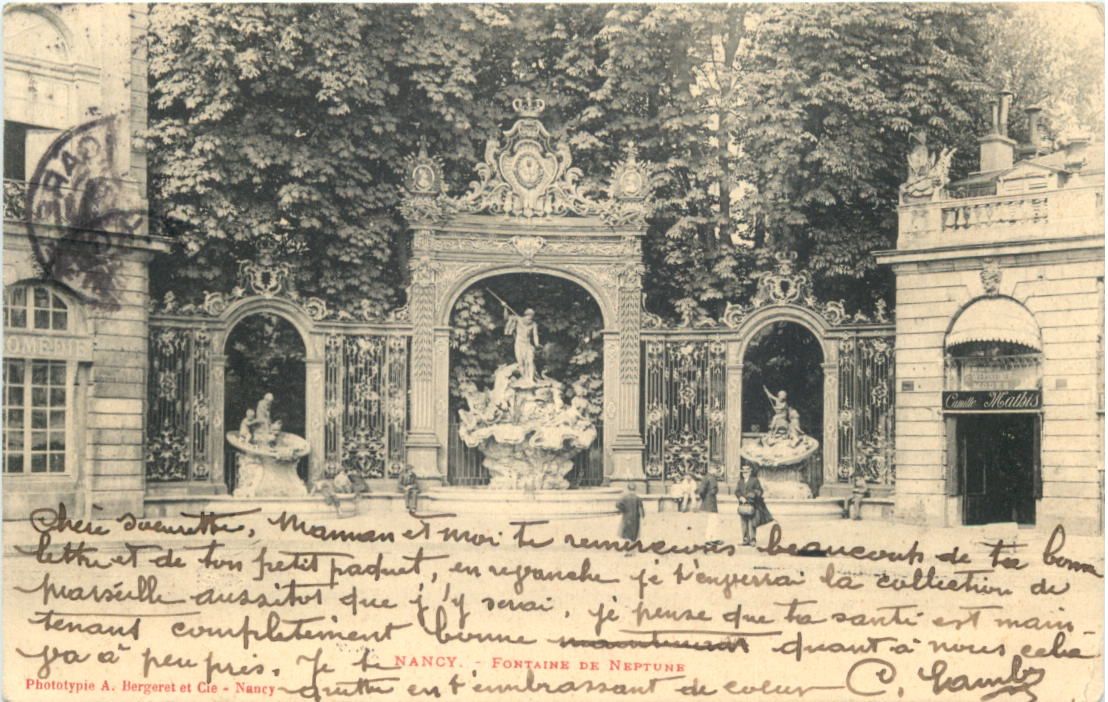 COMEDIE
Camille Mathis
Chere soeurette, Maman et moi te remercions beaucoup de ta bonne
lettre et de ton petit paquet, en revanche je t'enverrai la collection de
Marseille aussitot que j'y serai, je pense que ta santé est main-
tenant completement bonne maintenant quant à nous cela
va à peu près. Je te
NANCY. - FONTAINE DE NEPTUNE
Phototypie A. Bergeret et Cie - Nancy
quitte en t'embrassant de coeur C.